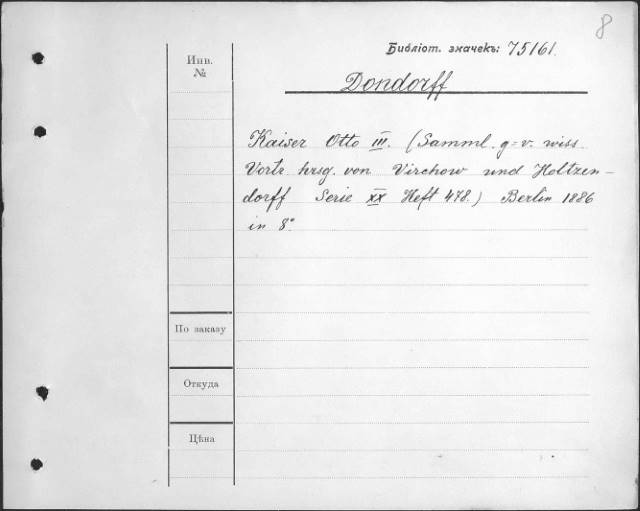 8
Библіот. значекъ: 75161.
Инв. №
Dondorff
Kaiser Otto III. (Samml. g=v. wiss.
Vortr. hrsg. von Virchow und Holtzen-
dorff Serie XX Heft 478.) Berlin 1886
in 8°
По заказу
Откуда
Цѣна